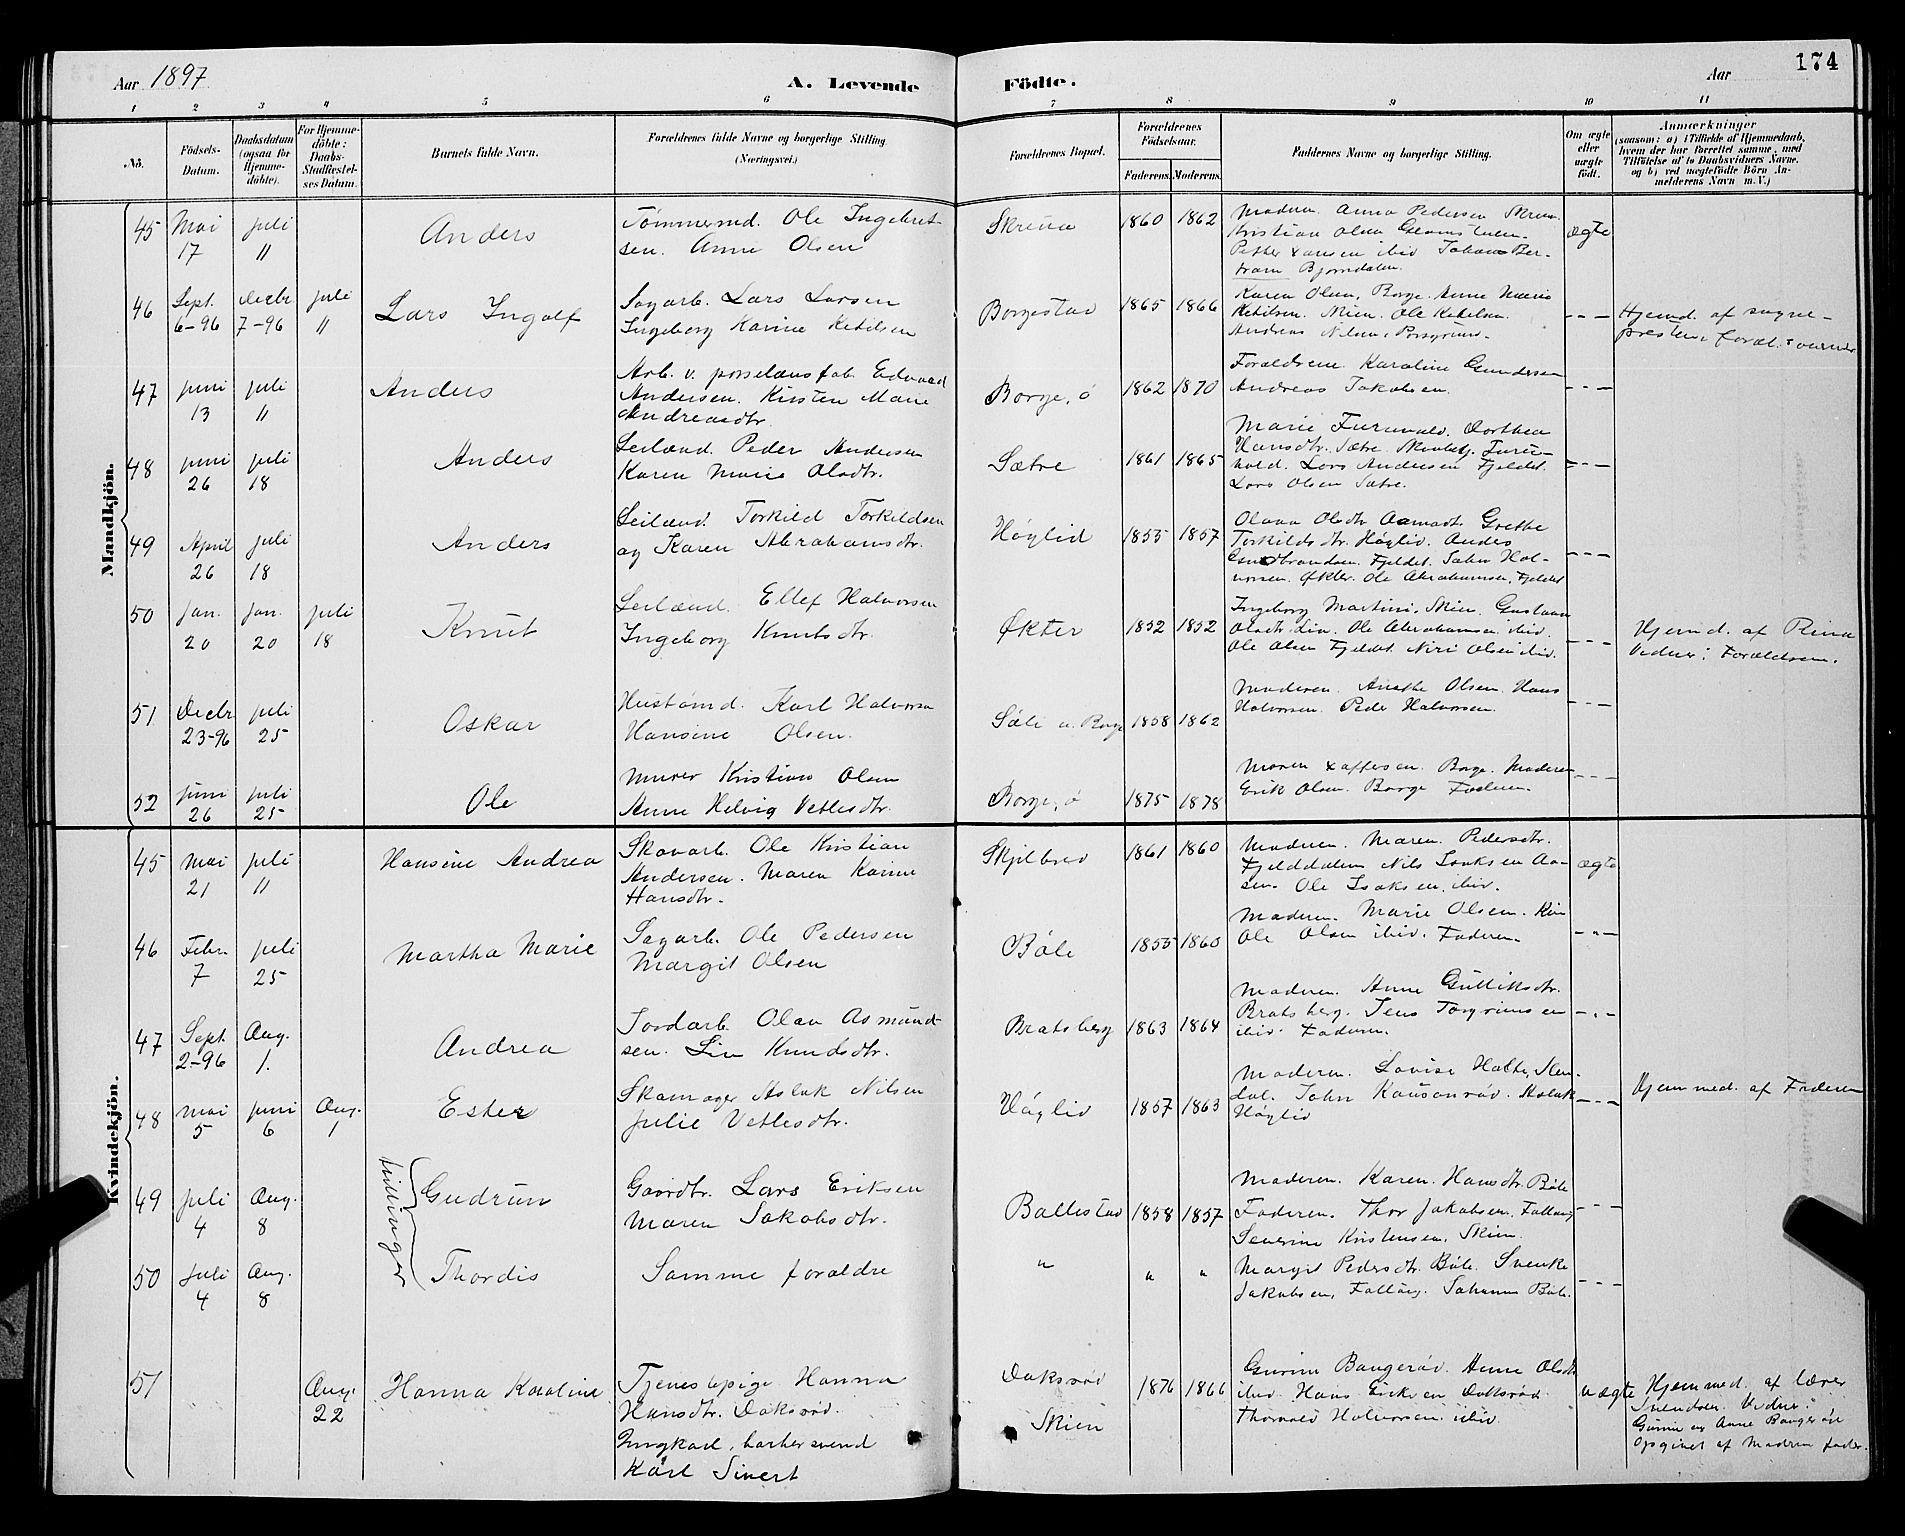 Aar 1897
A. Levende Födte.
Aar
174
1 2 3 4 5 6 7 8 9 10 11
No.
Födsels-
Datum.
Daabsdatum
(ogsaa for
Hjemme-
döbte).
For Hjemme-
döbte:
Daabs-
Stadfæstel-
ses Datum.
Barnets fulde Navn.
Forældrenes fulde Navne og borgerlige Stilling
(Næringsvei.)
Forældrenes Bopæl.
Forældrenes
Födselsaar.
Faderens. Moderens.
Faddernes Navne og borgerlige Stilling.
Om ægte
eller
uægte
født.
Anmærkninger
(saasom: a) i Tilfælde af Hjemmedaab,
hvem der har forrettet samme, med
Tilføielse af to Daabsvidners Navne,
og b) ved uægtefödte Börn An-
melderens Navn m. V.)
Mandkjön.
45 Mai 17 Juli 11 Anders
Tömmermd. Ole Ingebret-
sen. Anne Olsen
1860 1862
Moderen. Anna Pedersen
Kristian Olsen
ibid Johan Ber-
tram Bjorndalen.
ægte
46 Sept. 6-96 Decbr 7-96 Juli 11 Lars Ingolf
Sagarb. Lars Larsen
Ingeborg Karine Ketilsen
Borgestad 1865 1866
Karen Olsen, Borge. Anne Marie
Ketilsen. Skien. Ole Ketilsen.
Andreas Nilsen, Porsgrund.
- - -
Hjemd. af sogne-
presten
47 Juni 13 Juli 11 Anders
Arb. v. porselænsfab. Edvard
Andersen. Kirsten Marie
Andreasdtr.
Borge, ö 1862 1870
Foraldrene Karoline Gundersen
Andreas Jakobsen.
- - -
48 Juni 26 Juli 18 Anders
Leilænd. Peder Andersen
Karen Marie Olsdtr.
Sætre 1861 1865
Marie Furuvald. Dorthea
Hansdtr. Sætre.
Lars Andersen Fjeldet.
Lars Olsen Sætre.
- - -
49 April 26 Juli 18 Anders
Leilænd. Torkild Torkildsen
og Karen Abrahamsdtr.
Höglid 1855 1857
Olava Olsdtr Grethe
Torkildsdtr. Höglid. Andes
Fjeldet. John Hal-
vorsen. Økter. Ole Abrahamsen, Fjeldet
- - -
50 Jan. 20 Jan. 20 Juli 18 Knut
Leilænd. Ellef Halvorsen
Ingeborg Knutsdtr.
Økter 1852 1852
Ingeborg Martins, Skien. Gustava
Olsdtr. Lia. Ole Abrahamsen ibid.
Ole Olsen Fjeldet. Olsen ibid.
- - -
Hjemd. af
Vidner: Forældrene.
51 Decbr 23-96 Juli 25 Oskar
Hustömd. Karl Halvorsen
Hansine Olsen.
1858 1862
Moderen. Anethe Olsen. Hans
Halvorsen. Peder Halvorsen.
- - -
52 Juni 26 Juli 25 Ole
Murer Kristian Olsen
Anne Helvig Vetlesdtr.
Borge, ö 1875 1878
Maren Borge. Moderen
Erik Olsen. Borge Faderen.
- - -
Kvindekjön.
45 Mai 21 Juli 11 Hansine Andrea
Skovarb. Ole Kristian
Andersen. Maren Karine
Hansdtr.
Skjilbred 1861 1860
Moderen. Maren Pedersdtr.
Fjelddalen Nils Isaksen Aa-
sen. Ole Isaksen, ibid.
ægte
46 Febr. 7 Juli 25 Martha Marie
Sagarb. Ole Pedersen
Margit Olsen
Böle 1855 1860
Moderen. Marie Olsen.
Ole Olsen ibid. Faderen.
- " -
47 Sept. 2-96 Aug. 1. Andrea
Jordarb. Olav Asmund-
sen. Liv Knudsdtr.
Bratsberg 1863 1864
Moderen. Anne Gulliksdtr.
Bratsberg. Jens Torgrimsen
ibid. Faderen.
- " -
48 Mai 5 Juni 6 Aug. 1 Ester
Skomager Aslak Nilsen
Julie Vetlesdtr.
Höglid 1857 1863
Moderen. Lovise Holte,
John Aslak
Höglid
- - -
Hjemmed. af Faderen
tvillinger
49 Juli 4 Aug. 8 Gudrun
Gaardbr. Lars Eriksen
Maren Jakobsdtr.
Ballestad 1858 1857
Moderen. Karen Hansdtr. Böle
Faderen. Thor Jakobsen,
Severine Kristensen, Skien.
- - -
50 Juli 4 Aug. 8 Thordis
Samme foraldre
" " "
Margit Pedersdtr. Böle.
Jakobsen, Johannes Böle.
- - -
51 Aug. 22 Hanna Karoline
Tjenestepige Hanna
Hansdtr. Daksröd.
Ungkarl, barbersvend
Karl Sivert
Daksröd
Skien
1876 1866
Gurine Bangeröd. Anne Olsdtr
ibid. Hans Eriksen Daksröd.
Thorvald Halvorsen ibid.
uægte
Hjemmed. af lærer
Svendsen. Vidner:
Gurine og Anne Bangeröd
Opgivet af Moderen fader.